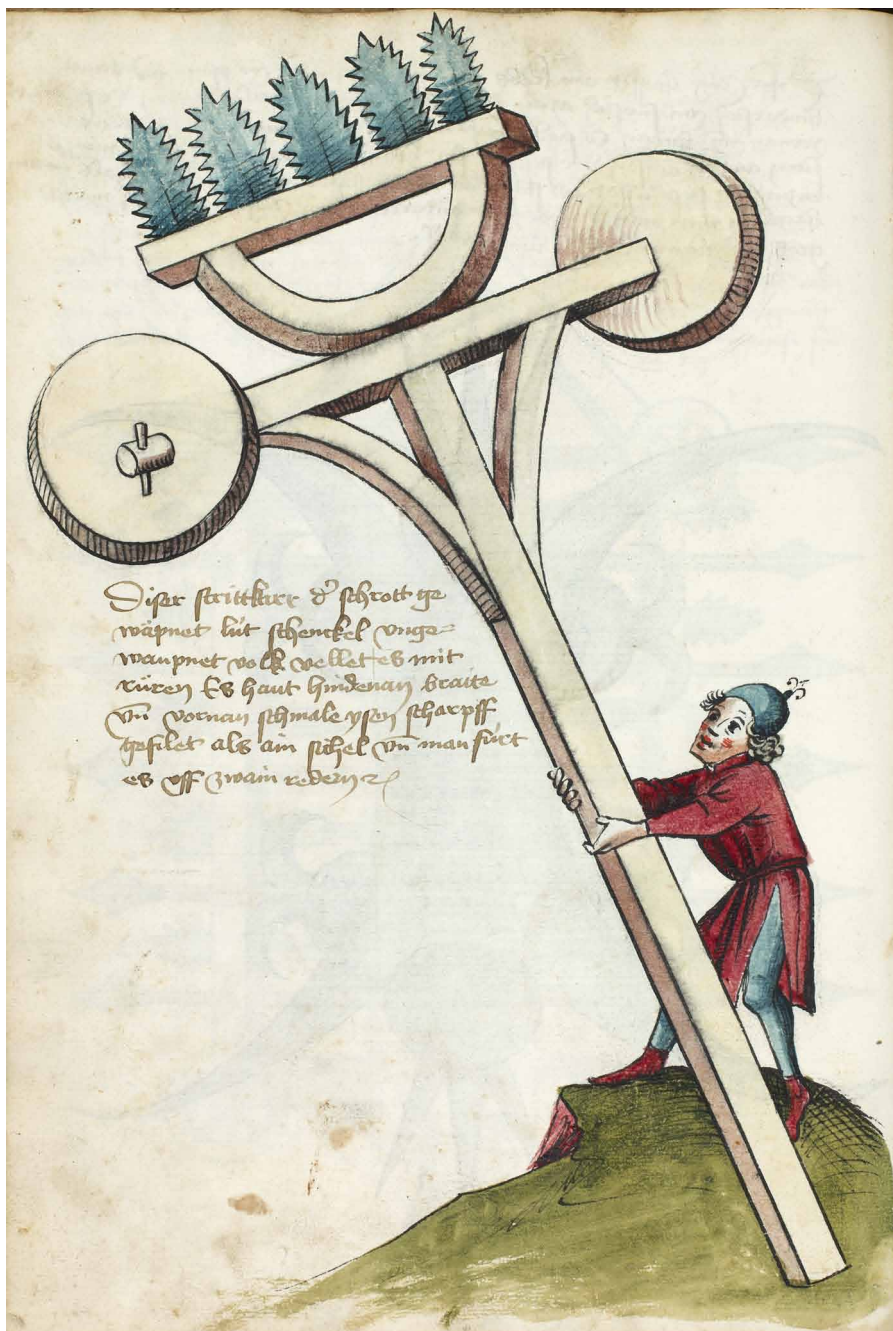 Diser strittkarr d' schrott ge
wapnet lüt schenckel vnge=
waupnet volk vellet es mit
rüren Es haut hindenan braite
vn̄ vornan schmale ysen scharpff
gefilet als ain sichel vn̄ man fürt
es vff zwain redern